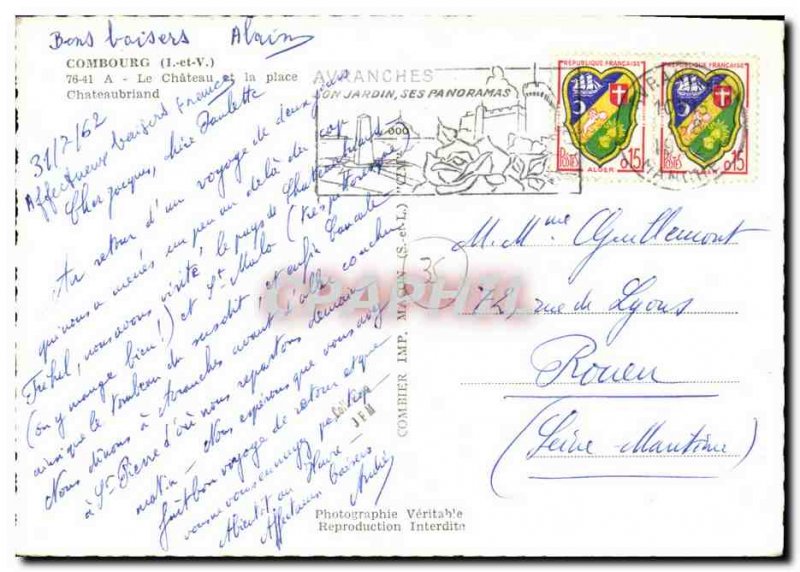 Bons baisers Alain
COMBOURG (I.-et-V.)
76-41 A - Le Château et la place
Chateaubriand
31/7/62
Affectueux baisers France
Cher Jacques, chère Paulette
Au retour d'un voyage de deux jours
qui nous a menés un peu au delà du cap
Fréhel, nous avons visité le pays de Chateaubriand
(on y mange bien!) et St Malo (très pittoresque)
ainsi que le tombeau du susdit, et enfin Cancale
Nous dînons à Avranches avant d'aller coucher
à St Pierre d'où nous repartons demain
matin - Nous espérons que vous avez
fait bon voyage de retour et que
vous ne vous ennuyez pas trop
A bientôt au Havre -
Affectueux baisers
André
COMBIER IMP. MACON (S.-et-L.)
Photographie Véritable
Reproduction Interdite
AVRANCHES
SON JARDIN, SES PANORAMAS
REPUBLIQUE FRANÇAISE
POSTES
ALGER
0,15
REPUBLIQUE FRANÇAISE
0,15
35
M. Mme Guillemont
rue de Lyons
Rouen
(Seine Maritime)
CPAPHIL